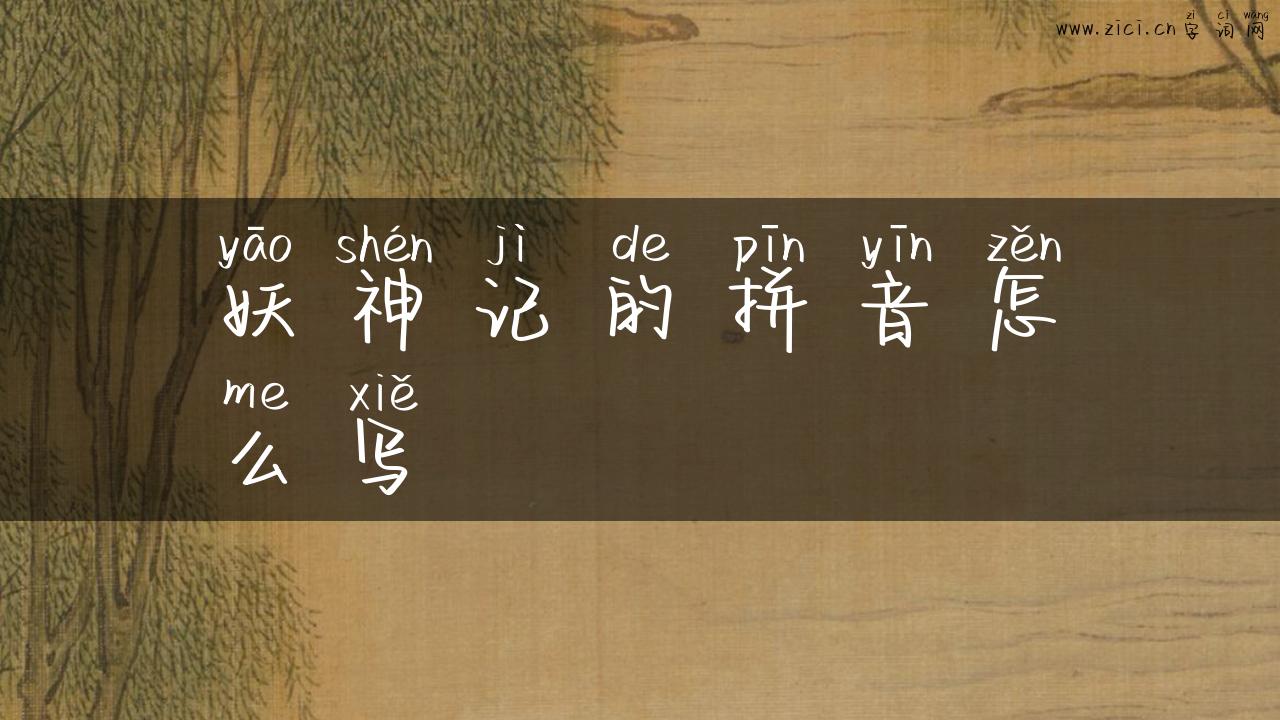 zì cí wǎng
www.zici.cn 字词网
yāo shén jì de pīn yīn zěn
妖神记的拼音怎
me xiě
么写